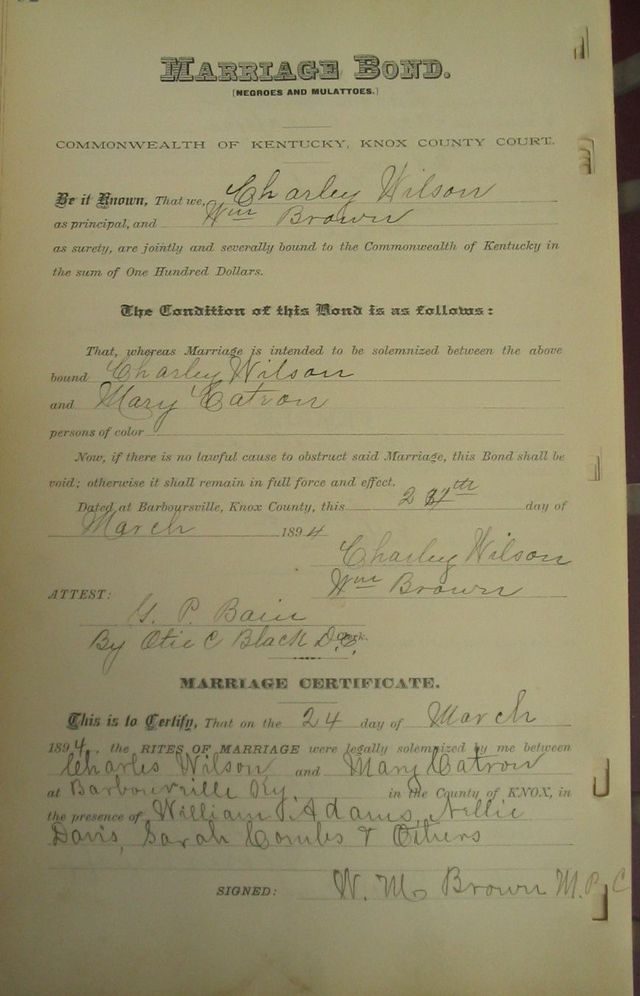 MARRIAGE BOND.
[NEGROES AND MULATTOES.]
COMMONWEALTH OF KENTUCKY, KNOX COUNTY COURT.
Be it Known, That we, Charley Wilson
as principal, and Wm Brown
as surety, are jointly and severally bound to the Commonwealth of Kentucky in
the sum of One Hundred Dollars.
The Condition of this Bond is as follows:
That, whereas Marriage is intended to be solemnized between the above
bound Charley Wilson
and Mary Catron
persons of color
Now, if there is no lawful cause to obstruct said Marriage, this Bond shall be
void; otherwise it shall remain in full force and effect.
Dated at Barboursville, Knox County, this 24th day of
March 1894
Charley Wilson
Wm Brown
ATTEST:
G. P. Bain
By Otie C Black D.C.
MARRIAGE CERTIFICATE.
This is to Certify, That on the 24 day of March
1894, the RITES OF MARRIAGE were legally solemnized by me between
Charles Wilson and Mary Catron
at Barbourville Ky. in the County of KNOX, in
the presence of William Adams, Nellie
Davis, Sarah Combs & Others
SIGNED: W. M. Brown M. P. C